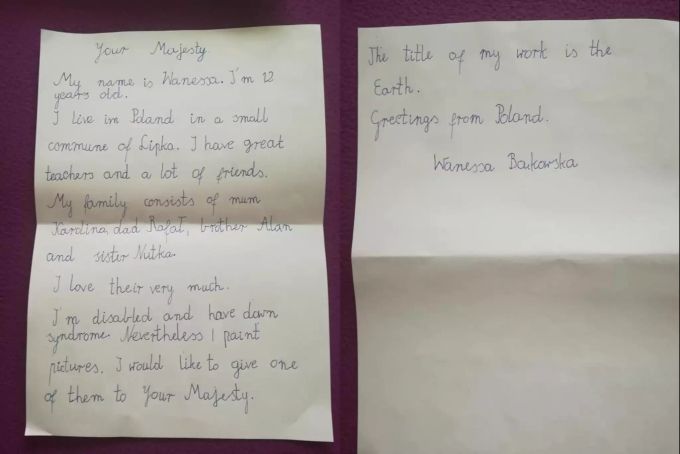 Your Majesty
My name is Wanessa. I'm 12
years old.
I live in Poland in a small
commune of Lipka. I have great
teachers and a lot of friends.
My family consists of mum
Karolina, dad Rafał, brother Alan
and sister Nutka.
I love their very much.
I'm disabled and have down
syndrome. Nevertheless I paint
pictures. I would like to give one
of them to Your Majesty.
The title of my work is the
Earth.
Greetings from Poland.
Wanessa